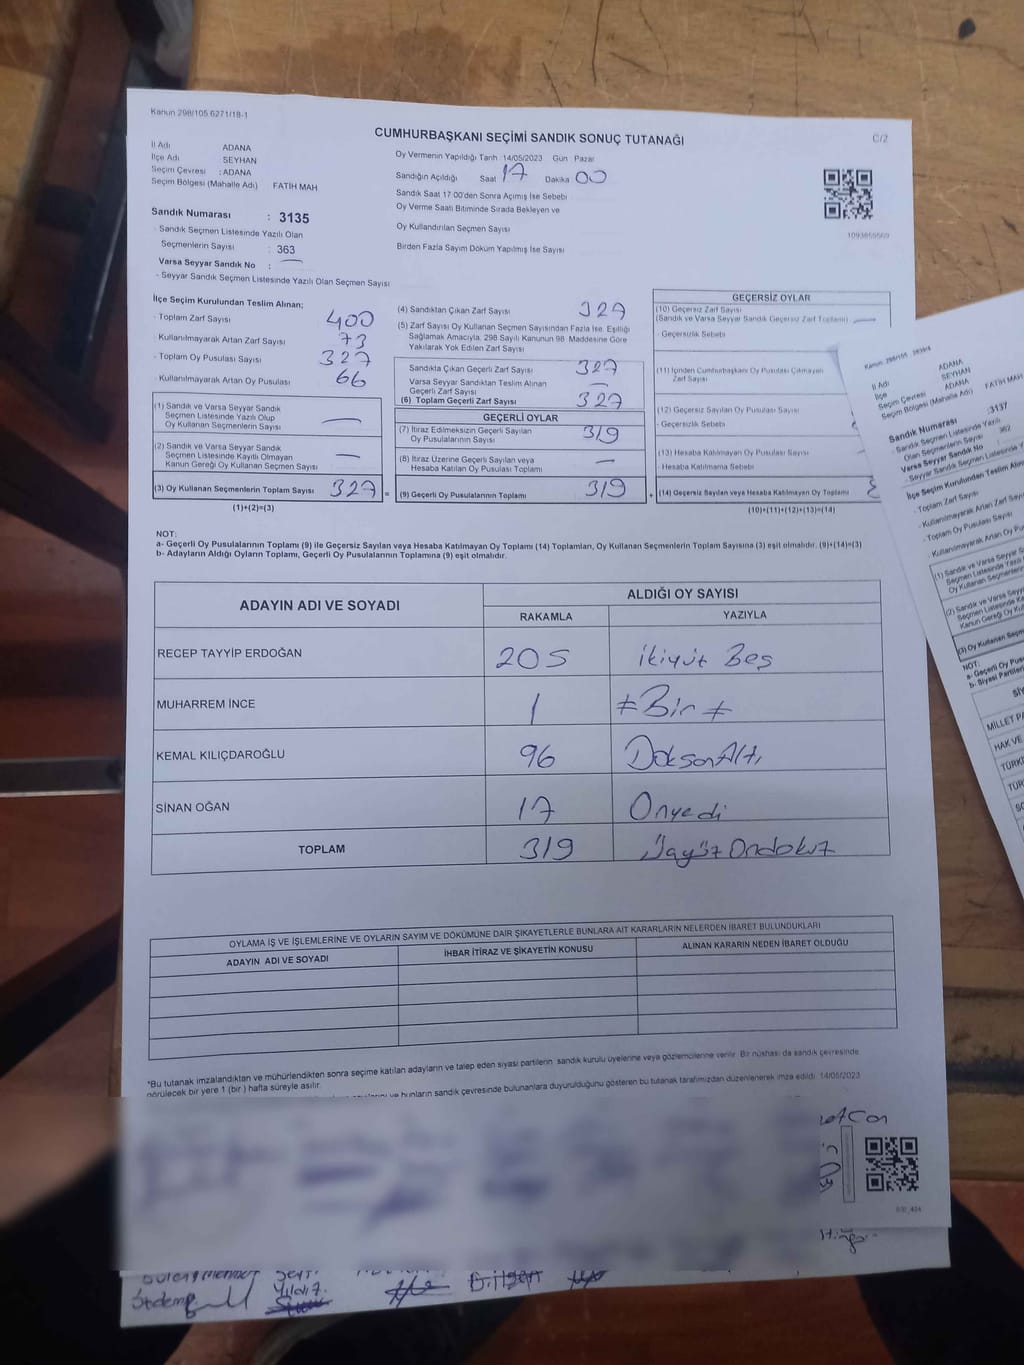 Kanun 298/105 6271/18-1
CUMHURBAŞKANI SEÇİMİ SANDIK SONUÇ TUTANAĞI
C/2
İl Adı ADANA
İlçe Adı SEYHAN
Seçim Çevresi : ADANA
Seçim Bölgesi (Mahalle Adı) FATİH MAH
Oy Vermenin Yapıldığı Tarih 14/05/2023 Gün Pazar
Sandığın Açıldığı Saat 17 Dakika 00
Sandık Saat 17 00'den Sonra Açımış İse Sebebi
Oy Verme Saati Bitiminde Sırada Bekleyen ve
Oy Kullandırılan Seçmen Sayısı
Birden Fazla Sayım Döküm Yapılmış İse Sayısı
1093855569
Sandık Numarası : 3135
- Sandık Seçmen Listesinde Yazılı Olan
Seçmenlerin Sayısı : 363
Varsa Seyyar Sandık No : —
- Seyyar Sandık Seçmen Listesinde Yazılı Olan Seçmen Sayısı
İlçe Seçim Kurulundan Teslim Alınan;
- Toplam Zarf Sayısı 400
- Kullanılmayarak Artan Zarf Sayısı 73
- Toplam Oy Pusulası Sayısı 327
- Kullanılmayarak Artan Oy Pusulası 66
(1) Sandık ve Varsa Seyyar Sandık
Seçmen Listesinde Yazılı Olup
Oy Kullanan Seçmenlerin Sayısı —
(2) Sandık ve Varsa Seyyar Sandık
Seçmen Listesinde Kayıtlı Olmayan
Kanun Gereği Oy Kullanan Seçmen Sayısı —
(3) Oy Kullanan Seçmenlerin Toplam Sayısı 327 =
(1)+(2)=(3)
(4) Sandıktan Çıkan Zarf Sayısı 327
(5) Zarf Sayısı Oy Kullanan Seçmen Sayısından Fazla İse, Eşitliği
Sağlamak Amacıyla, 298 Sayılı Kanunun 98. Maddesine Göre
Yakılarak Yok Edilen Zarf Sayısı
Sandıkta Çıkan Geçerli Zarf Sayısı 327
Varsa Seyyar Sandıktan Teslim Alınan
Geçerli Zarf Sayısı —
(6) Toplam Geçerli Zarf Sayısı 327
GEÇERLİ OYLAR
(7) İtiraz Edilmeksizin Geçerli Sayılan
Oy Pusulalarının Sayısı 319
(8) İtiraz Üzerine Geçerli Sayılan veya
Hesaba Katılan Oy Pusulası Toplamı —
(9) Geçerli Oy Pusulalarının Toplamı 319 +
GEÇERSİZ OYLAR
(10) Geçersiz Zarf Sayısı
(Sandık ve Varsa Seyyar Sandık Geçersiz Zarf Toplamı) —
- Geçersizlik Sebebi
(11) İçinden Cumhurbaşkanı Oy Pusulası Çıkmayan
Zarf Sayısı
(12) Geçersiz Sayılan Oy Pusulası Sayısı
- Geçersizlik Sebebi
(13) Hesaba Katılmayan Oy Pusulası Sayısı
- Hesaba Katılmama Sebebi
(14) Geçersiz Sayılan veya Hesaba Katılmayan Oy Toplamı
(10)+(11)+(12)+(13)=(14)
NOT:
a- Geçerli Oy Pusulalarının Toplamı (9) ile Geçersiz Sayılan veya Hesaba Katılmayan Oy Toplamı (14) Toplamları, Oy Kullanan Seçmenlerin Toplam Sayısına (3) eşit olmalıdır. (9)+(14)=(3)
b- Adayların Aldığı Oyların Toplamı, Geçerli Oy Pusulalarının Toplamına (9) eşit olmalıdır.
ADAYIN ADI VE SOYADI
ALDIĞI OY SAYISI
RAKAMLA YAZIYLA
RECEP TAYYİP ERDOĞAN 205 ikiyüz Beş
MUHARREM İNCE 1 ≠Bir≠
KEMAL KILIÇDAROĞLU 96 DoksanAltı
SİNAN OĞAN 17 Onyedi
TOPLAM 319 Üçyüz Ondokuz
OYLAMA İŞ VE İŞLEMLERİNE VE OYLARIN SAYIM VE DÖKÜMÜNE DAİR ŞİKAYETLERLE BUNLARA AİT KARARLARIN NELERDEN İBARET BULUNDUKLARI
ADAYIN ADI VE SOYADI
İHBAR İTİRAZ VE ŞİKAYETİN KONUSU
ALINAN KARARIN NEDEN İBARET OLDUĞU
*Bu tutanak imzalandıktan ve mühürlendikten sonra seçime katılan adayların ve talep eden siyasi partilerin sandık kurulu üyelerine veya gözlemcilerine verilir. Bir nüshası da sandık çevresinde
görülecek bir yere 1 (bir) hafta süreyle asılır.
ve bunların sandık çevresinde bulunanlara duyurulduğunu gösteren bu tutanak tarafımızdan düzenlenerek imza edildi 14/05/2023
Yıldız
İl Adı ADANA
İlçe SEYHAN
Seçim Çevresi ADANA
Seçim Bölgesi (Mahalle Adı) FATİH MAH
Sandık Numarası : 3137
- Sandık Seçmen Listesinde Yazılı
Olan Seçmenlerin Sayısı 362
Varsa Seyyar Sandık No
- Seyyar Sandık Seçmen Listesinde
İlçe Seçim Kurulundan Teslim
- Toplam Zarf Sayısı
- Kullanılmayarak Artan Zarf
- Toplam Oy Pusulası Sayısı
- Kullanılmayarak Artan Oy
(1) Sandık ve Varsa Seyyar
Seçmen Listesinde
Oy Kullanan
(2) Sandık ve Varsa
Seçmen Listesinde
Kanun Gereği Oy
(3) Oy Kullanan
NOT:
a- Geçerli Oy
b- Siyasi
MİLLET
HAK VE